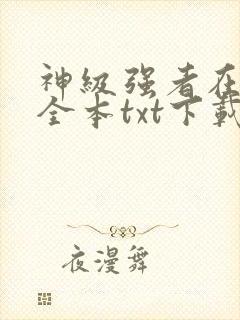 神级强者在
全本txt下载
夜漫舞